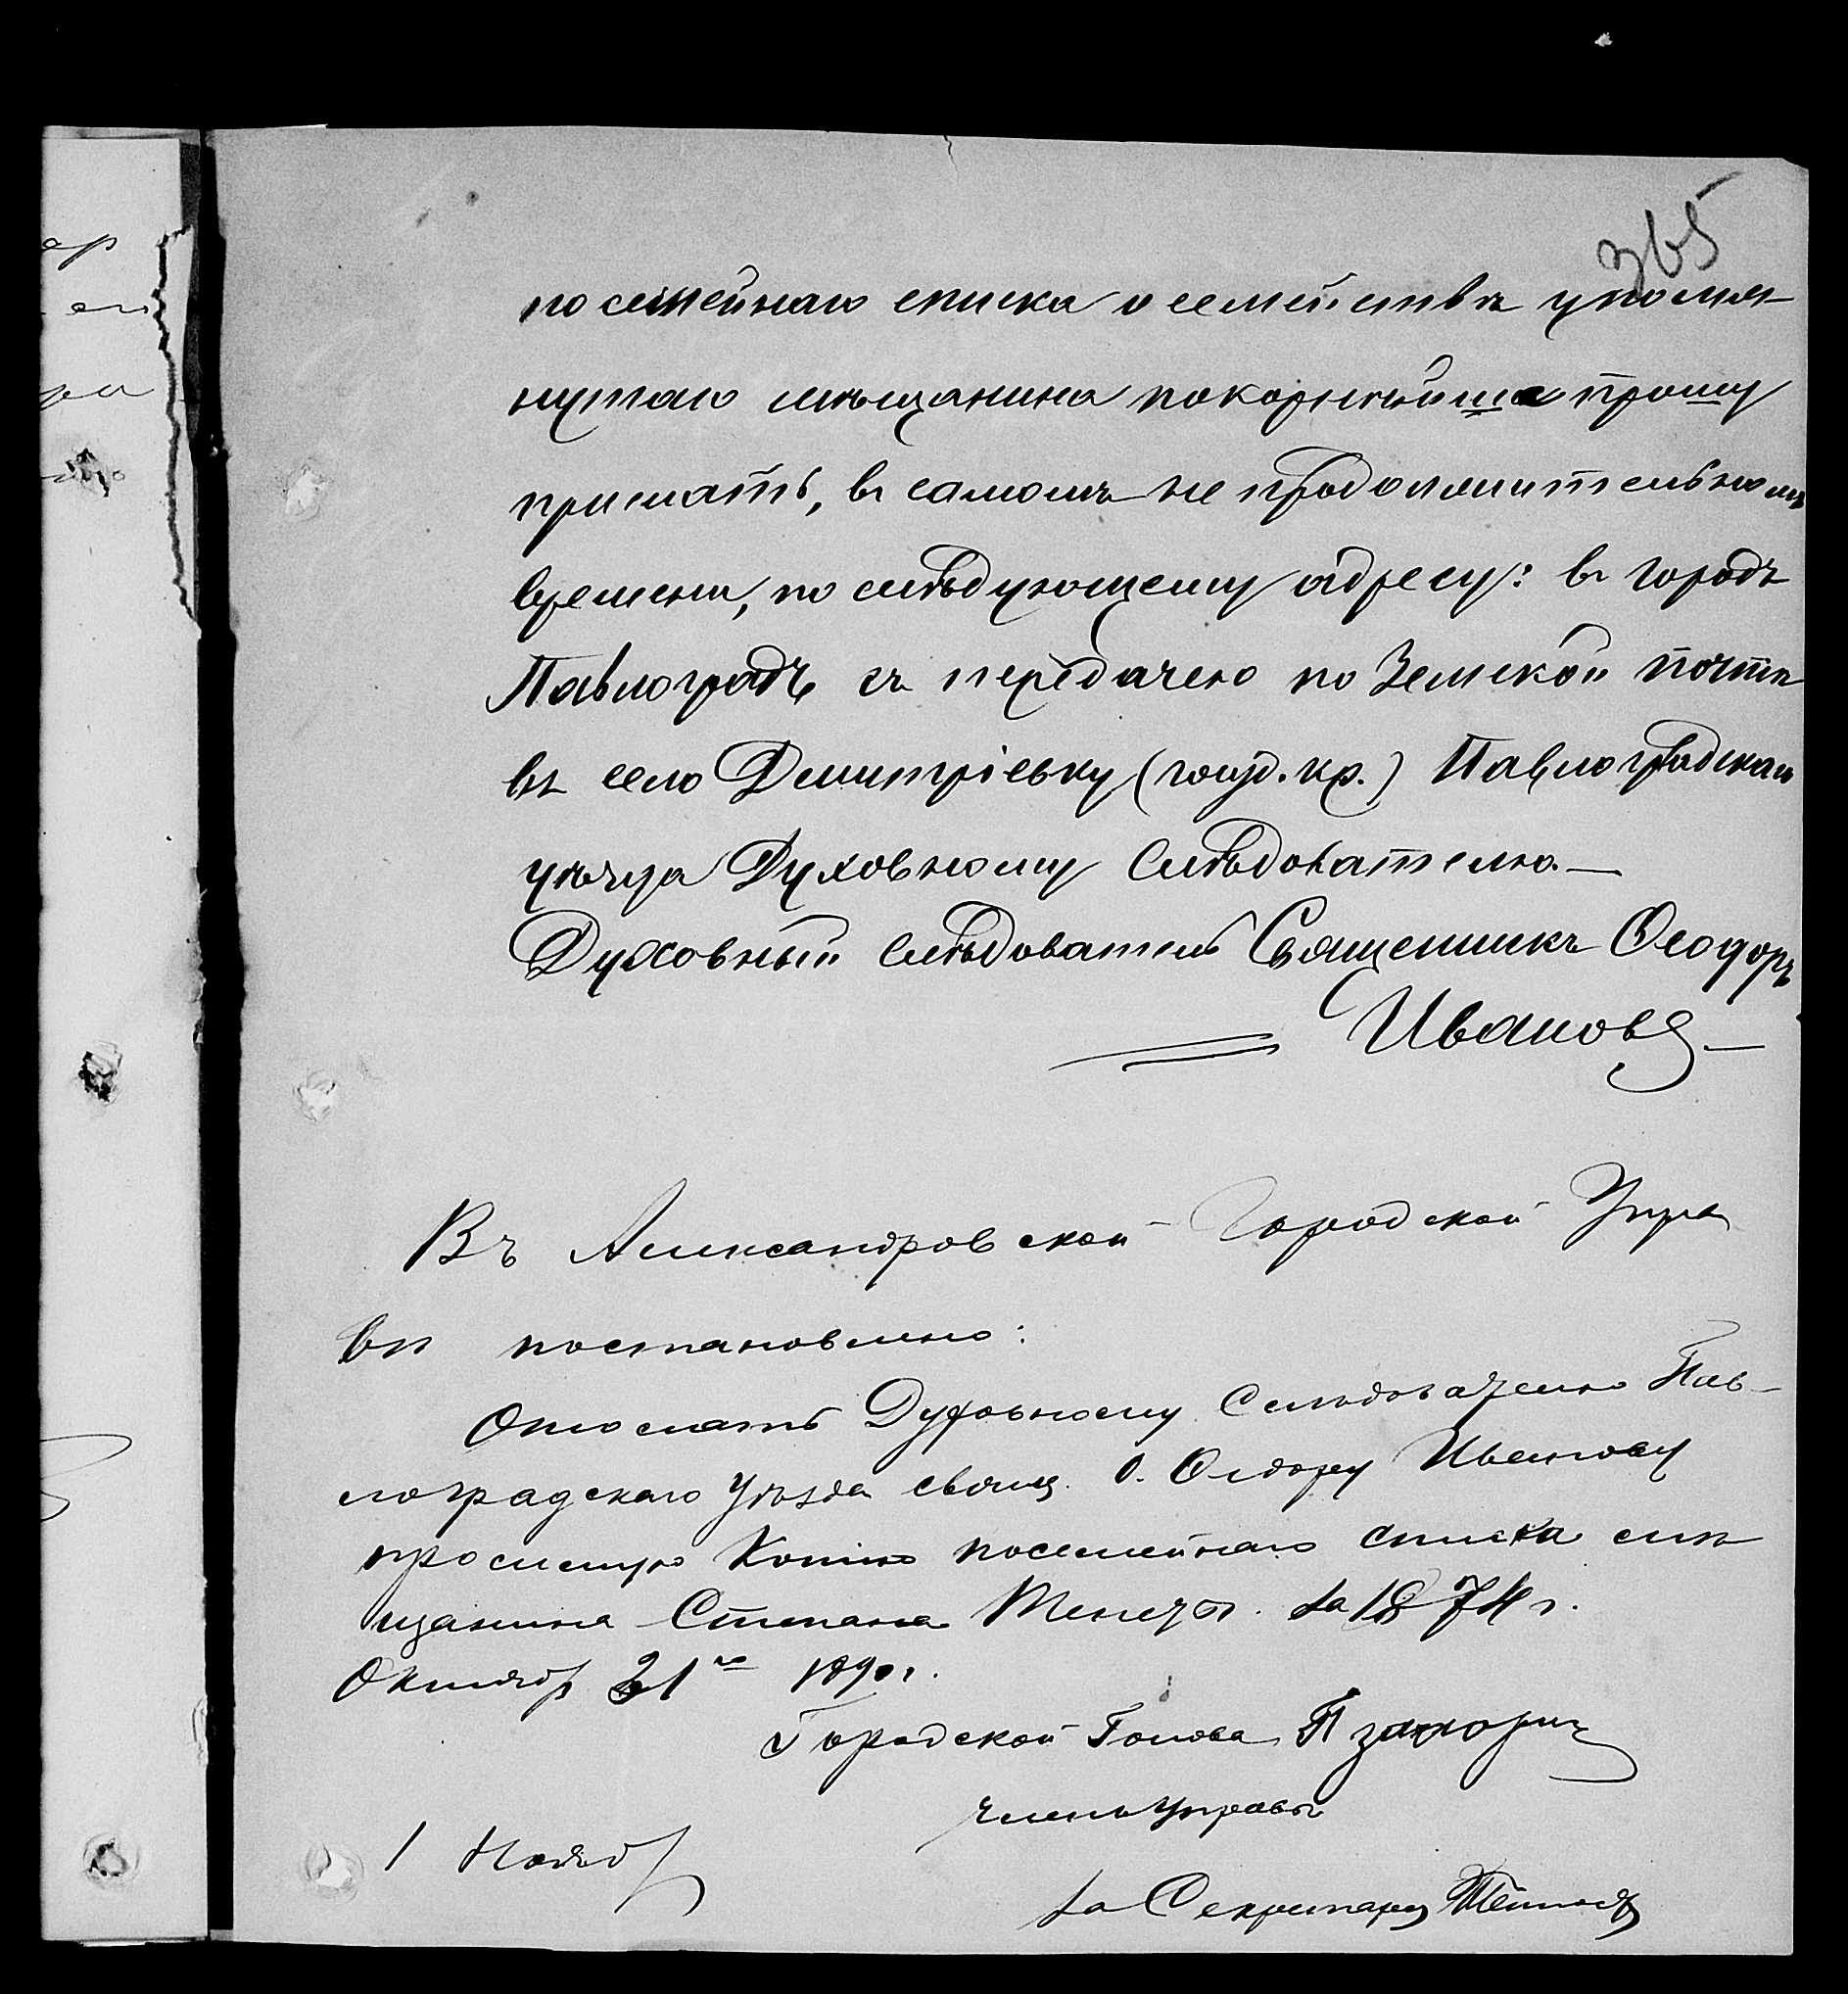 365
посемейнаго списка о семействѣ упомя-
нутаго мѣщанина покорнѣйше прошу
прислать, въ самомъ не продолжительномъ
времени, по слѣдующему адресу: въ городъ
Павлоградъ съ передачею по Земской почтѣ
въ село Дмитріевку (госуд. кр.) Павлоградскаго
уѣзда Духовному Слѣдователю.—
Духовный Слѣдователь Священникъ Ѳеодоръ
Ивановъ
Въ Александровской Городской Упра
вѣ постановлено:
Отослать Духовному Слѣдователю Пав-
лоградскаго Уѣзда свящ. О. Ѳедору Иванову
просимую Копію посемейнаго списка мѣ
щанина Степана за 1874 г.
Октября 31го 1890 г.
Городской Голова П
Членъ Управы
1 Ноября
За Секретаря